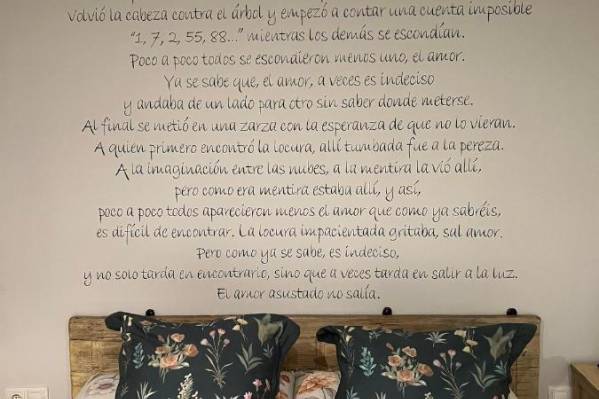 Volvió la cabeza contra el árbol y empezó a contar una cuenta imposible
“1, 7, 2, 55, 88...” mientras los demás se escondían.
Poco a poco todos se escondieron menos uno, el amor.
Ya se sabe que, el amor, a veces es indeciso
y andaba de un lado para otro sin saber donde meterse.
Al final se metió en una zarza con la esperanza de que no lo vieran.
A quien primero encontró la locura, allí tumbada fue a la pereza.
A la imaginación entre las nubes, a la mentira la vió allí,
pero como era mentira estaba allí, y así,
poco a poco todos aparecieron menos el amor que como ya sabréis,
es difícil de encontrar. La locura impacientada gritaba, sal amor.
Pero como ya se sabe, es indeciso,
y no solo tarda en encontrarlo, sino que a veces tarda en salir a la luz.
El amor asustado no salía.